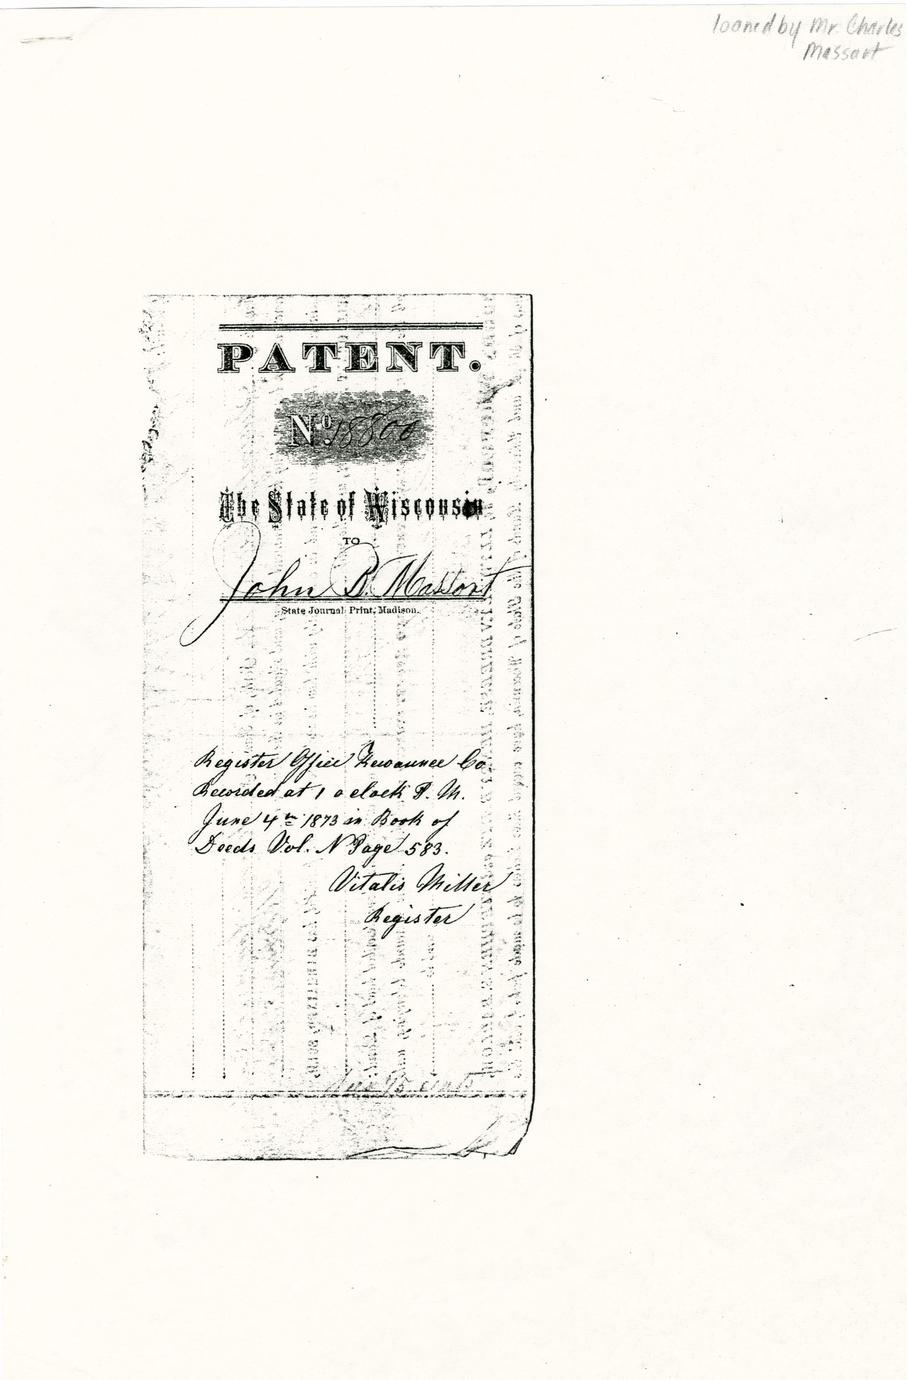 loaned by Mr. Charles
Massart
PATENT.
No. 18800
The State of Wisconsin
TO
John B. Massart
State Journal Print, Madison.
Register Office Kewaunee Co.
Recorded at 1 o clock P. M.
June 4th 1873 in Book of
Deeds Vol. N Page 583.
Vitalis Miller
Register
75 cents